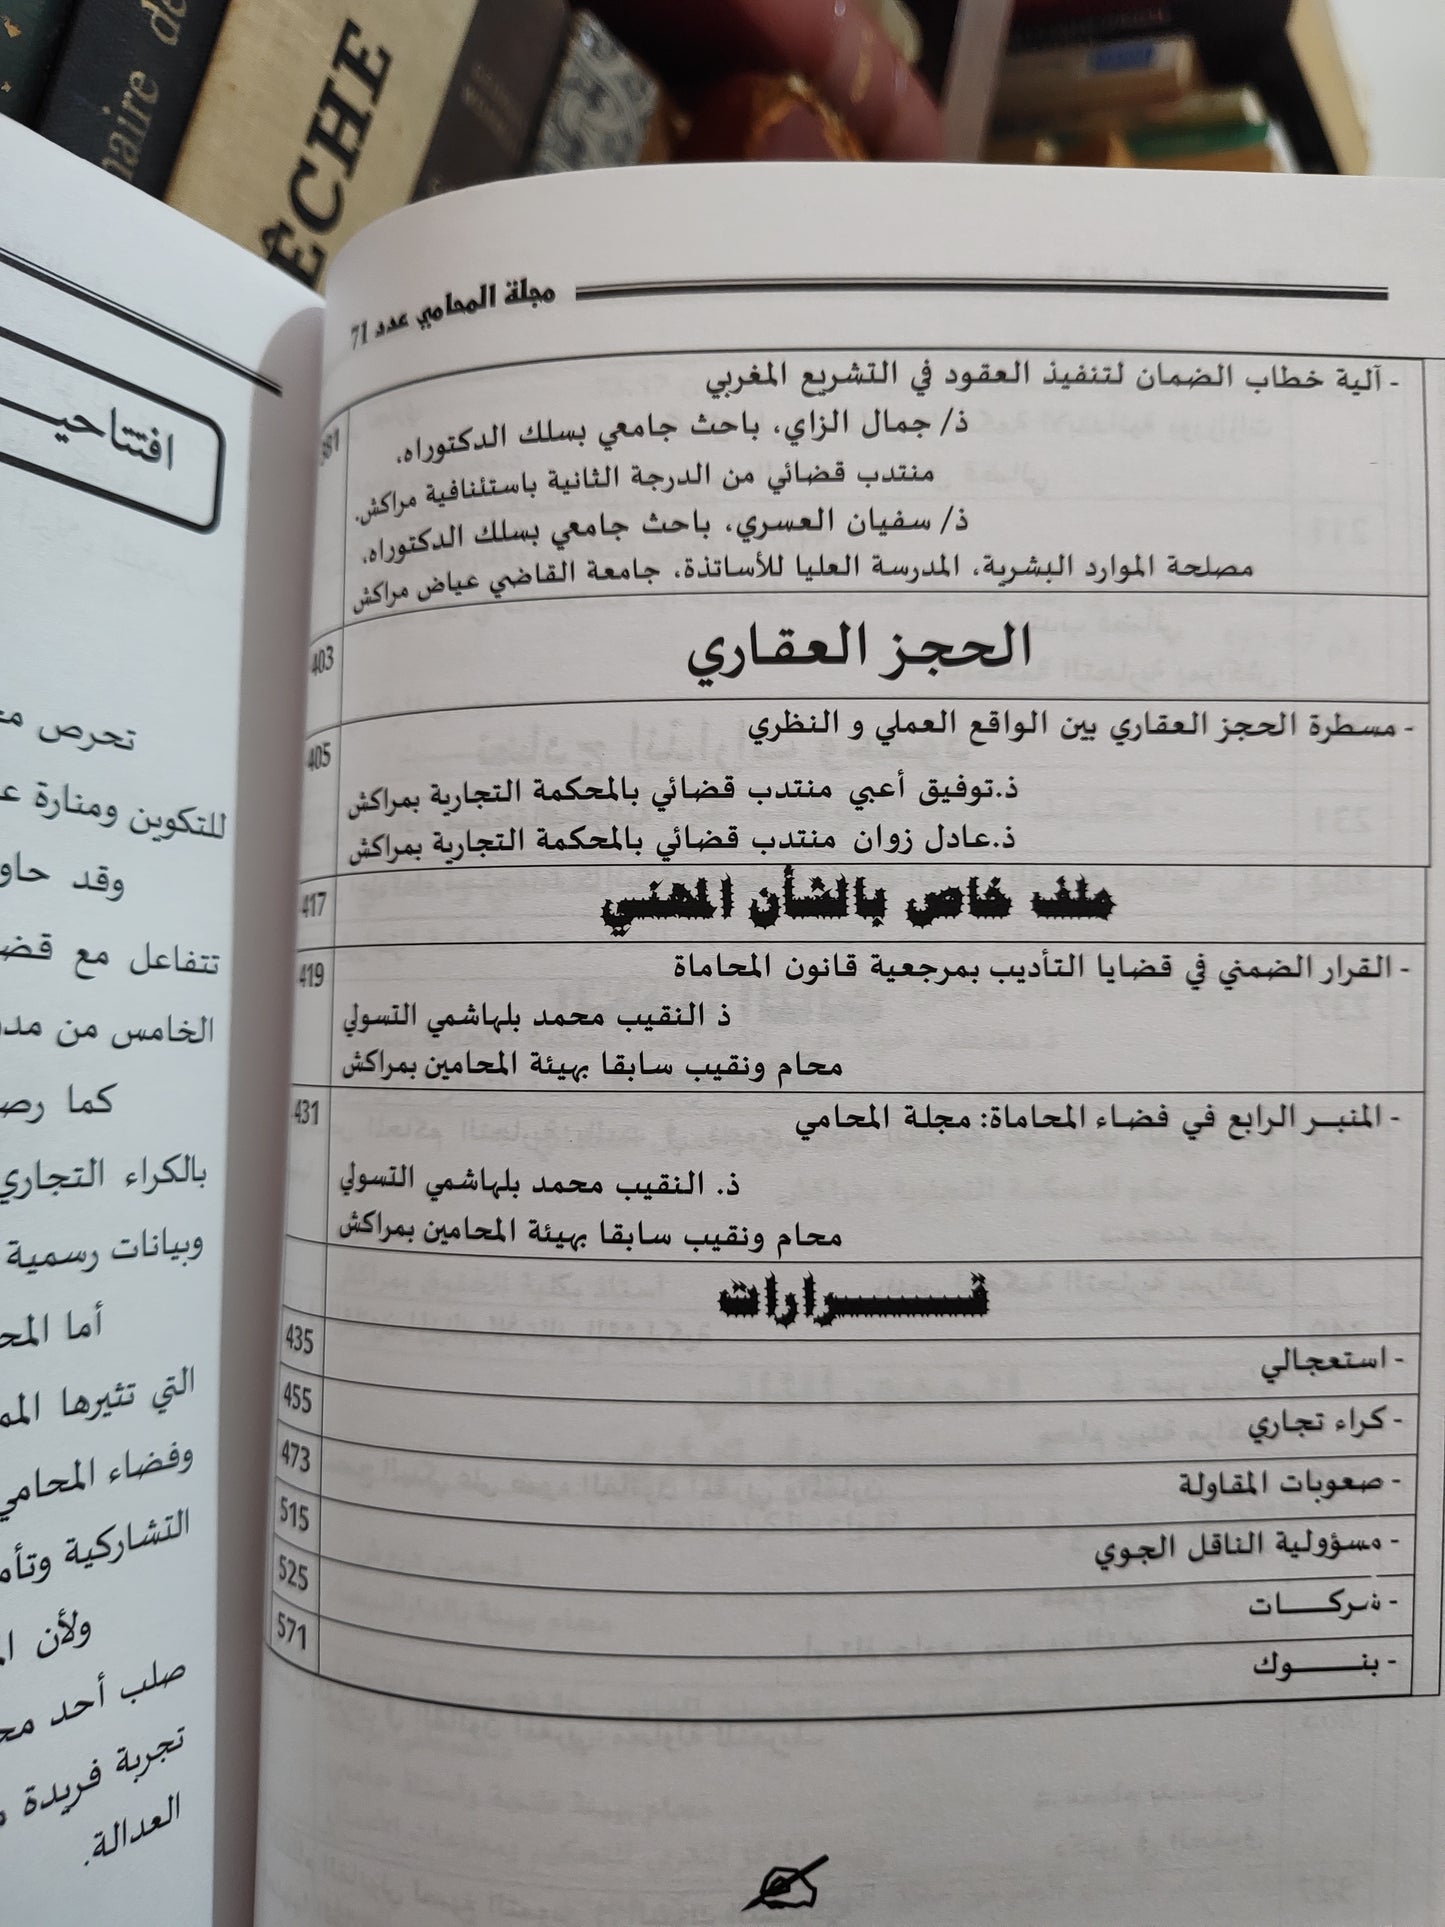 مجلة المحامي عدد 71
- آلية خطاب الضمان لتنفيذ العقود في التشريع المغربي
ذ/ جمال الزاي، باحث جامعي بسلك الدكتوراه،
منتدب قضائي من الدرجة الثانية باستئنافية مراكش.
ذ/ سفيان العسري، باحث جامعي بسلك الدكتوراه،
مصلحة الموارد البشرية، المدرسة العليا للأساتذة، جامعة القاضي عياض مراكش
الحجز العقاري
403
- مسطرة الحجز العقاري بين الواقع العملي و النظري
405
ذ.توفيق أعبي منتدب قضائي بالمحكمة التجارية بمراكش
ذ.عادل زوان منتدب قضائي بالمحكمة التجارية بمراكش
ملف خاص بالشأن المهني
417
- القرار الضمني في قضايا التأديب بمرجعية قانون المحاماة
419
ذ النقيب محمد بلهاشمي التسولي
محام ونقيب سابقا بهيئة المحامين بمراكش
- المنبـر الرابع في فضاء المحاماة: مجلة المحامي
431
ذ. النقيب محمد بلهاشمي التسولي
محام ونقيب سابقا بهيئة المحامين بمراكش
قـــــرارات
- استعجالي
435
- كراء تجاري
455
- صعوبات المقاولة
473
- مسؤولية الناقل الجوي
515
- شركـــات
525
- بنـــــوك
571
افتتاحيـ
تحرص
للتكوين ومنارة
وقد حاو
تتفاعل مع قضـ
الخامس من
كما رصـ
بالكراء التجاري
وبيانات رسمية
أما المحـ
التي تثيرها
وفضاء المحامي
التشاركية
ولأن
صلب أحد
تجربة فريدة
العدالة.
naire de
ÊCHE